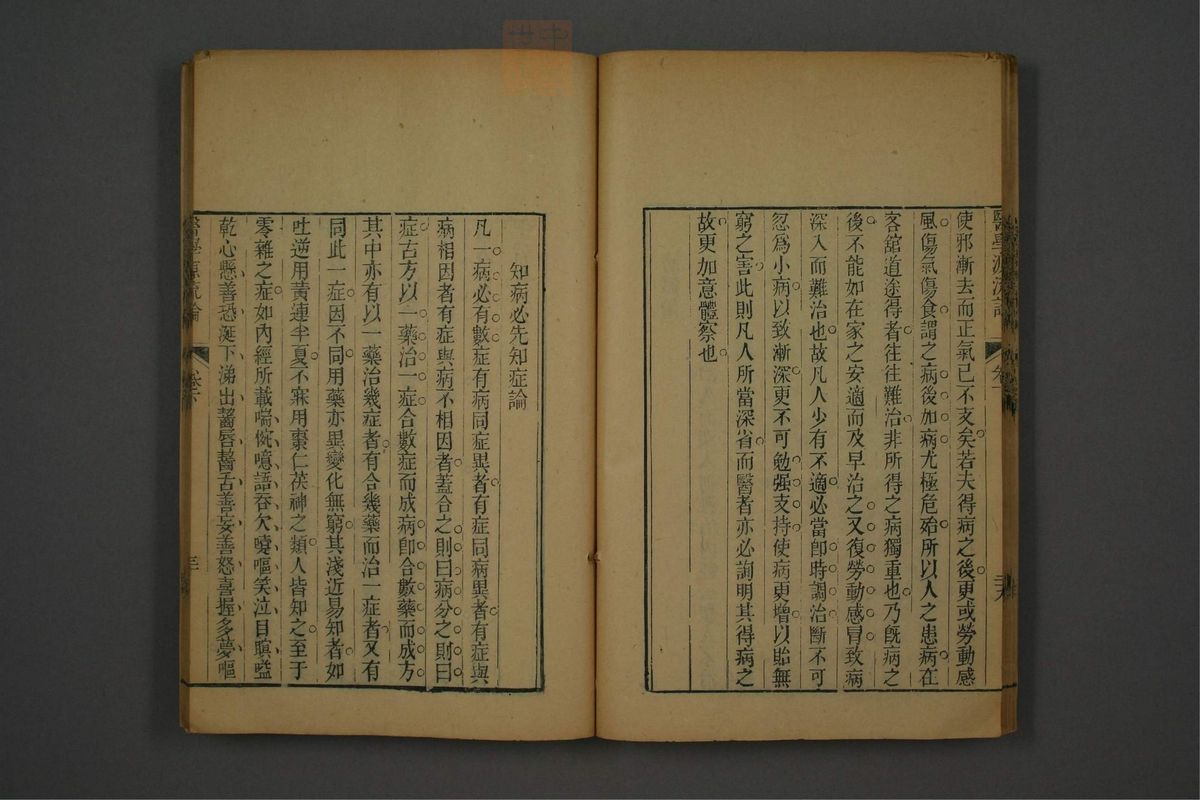 醫學源流論
卷
使邪漸去而正氣已不支矣若夫得病之後更或勞動感
風傷氣傷食謂之病後加病尤極危殆所以人之患病在
客館道途得者往往難治非所得之病獨重也乃旣病之
後不能如在家之安適而及早治之又復勞動感冒致病
深入而難治也故凡人少有不適必當卽時調治斷不可
忽爲小病以致漸深更不可勉强支持使病更增以貽無
窮之害此則凡人所當深省而醫者亦必詢明其得病之
故更加意體察也
知病必先知症論
凡一病必有數症有病同症異者有症同病異者有症與
病相因者有症與病不相因者蓋合之則曰病分之則曰
症古方以一藥治一症合數症而成病卽合數藥而成方
其中亦有以一藥治幾症者有合幾藥而治一症者又有
同此一症因不同用藥亦異變化無窮其淺近易知者如
吐逆用黃連半夏不寐用棗仁茯神之類人皆知之至于
零雜之症如內經所載喘惋噫語吞欠嚏嘔笑泣目瞑嗌
乾心懸善恐涎下涕出齧唇齧舌善妄善怒喜握多夢嘔
醫學源流論
卷